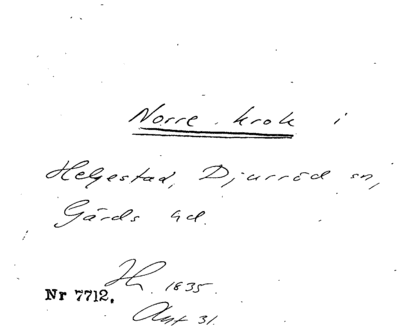 Norre krok i
Helgestad, Djurröd sn,
Gärds hd.
Hn. 1835.
Nr 7712.
Akt 31.